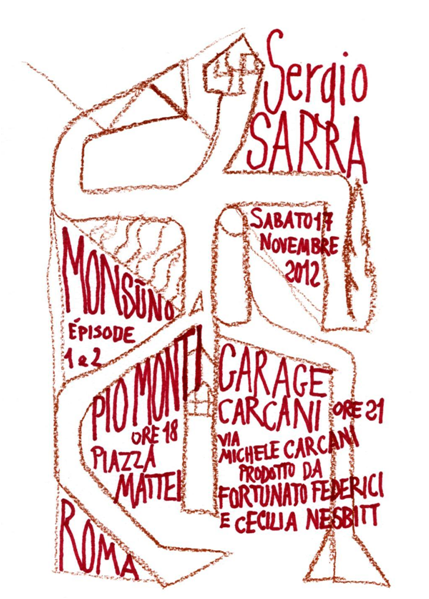 Sergio
SARRA
SABATO 17
NOVEMBRE
2012
MONSŪNO
ÉPISODE
1 e 2
PIO MONTI
ORE 18
PIAZZA
MATTEI
GARAGE
CARCANI ORE 21
VIA
MICHELE CARCANI
PRODOTTO DA
FORTUNATO FEDERICI
E CECILIA NESBITT
ROMA